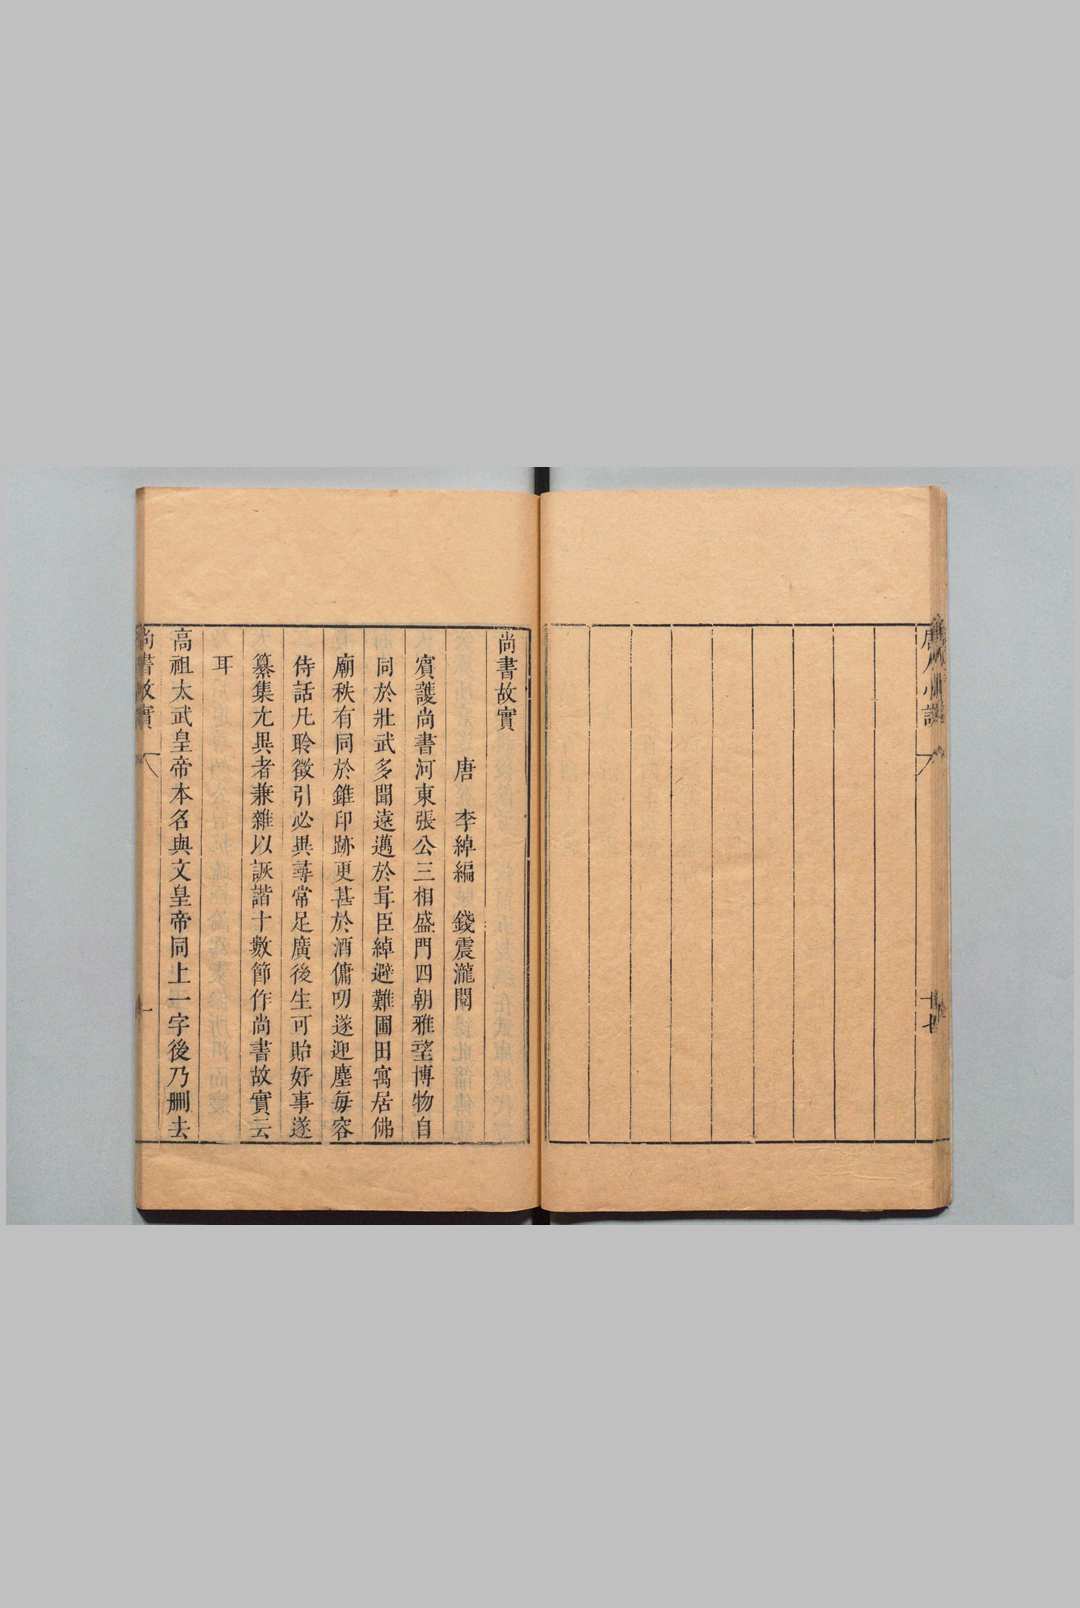 尚書故實
唐 李綽編 錢震瀧閱
賓護尚書河東張公三相盛門四朝雅望博物自
同於壯武多聞遠邁於胥臣綽避難圃田寓居佛
廟秩有同於錐印跡更甚於酒傭叨遂迎塵每容
侍話凡聆徵引必異尋常足廣後生可貽好事遂
纂集尤異者兼雜以詼諧十數節作尚書故實云
耳
高祖太武皇帝本名與文皇帝同上一字後乃刪去
尚書故實
一